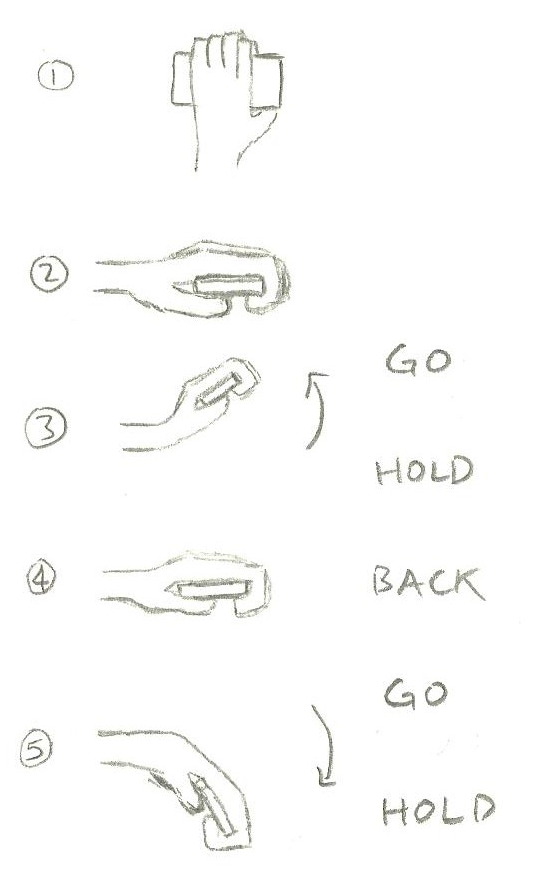 ①
②
GO
③
HOLD
④ BACK
GO
⑤
HOLD